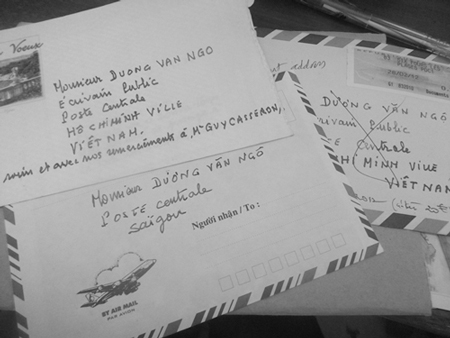 Voeux
Monsieur DUONG VAN NGO
Écrivain Public
Poste Centrale
HÔ CHI MINH VILLE
VIÊT NAM.
soin et avec nos remerciements à Mr GUY CASSERON,
Monsieur DƯƠNG VĂN NGÔ
POSTE centrale
Saïgon
Người nhận / To :
BY AIR MAIL
PAR AVION
address
DƯƠNG VĂN NGÔ
Public
Centrale
CHI MINH VILLE
VIÊT NAM